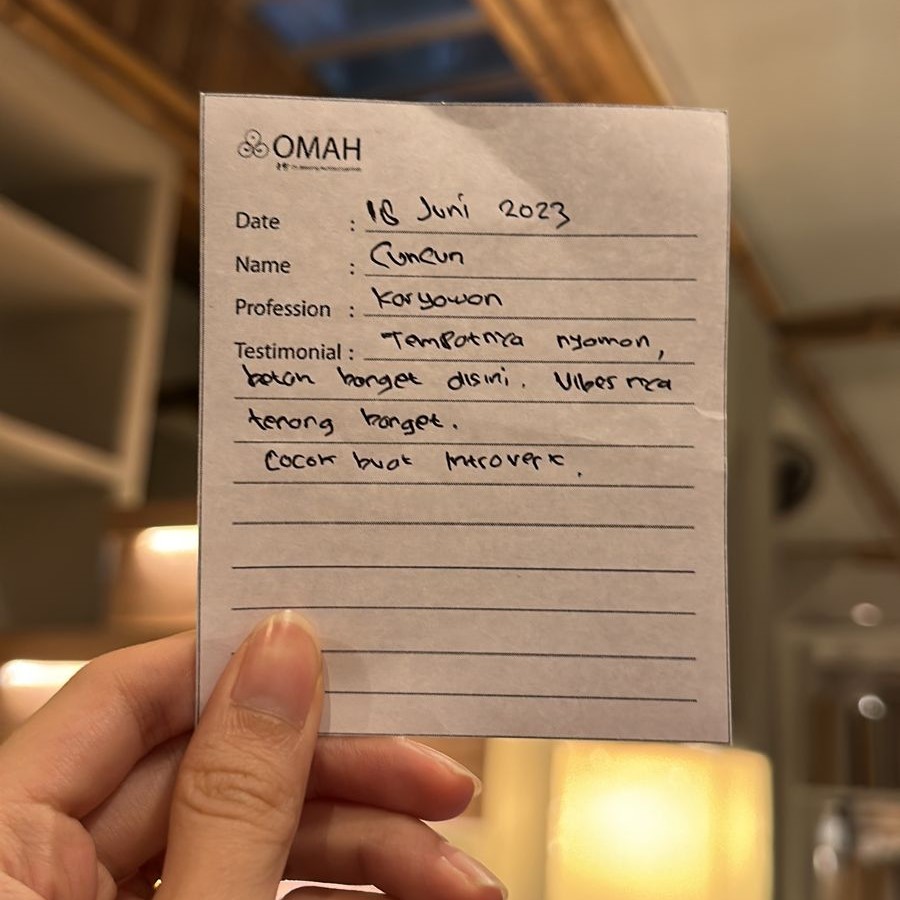 OMAH
Date : 18 Juni 2023
Name : Cuncun
Profession : Karyawan
Testimonial : Tempatnya nyaman,
betah banget disini. Vibes nya
tenang banget.
Cocok buat introvert.